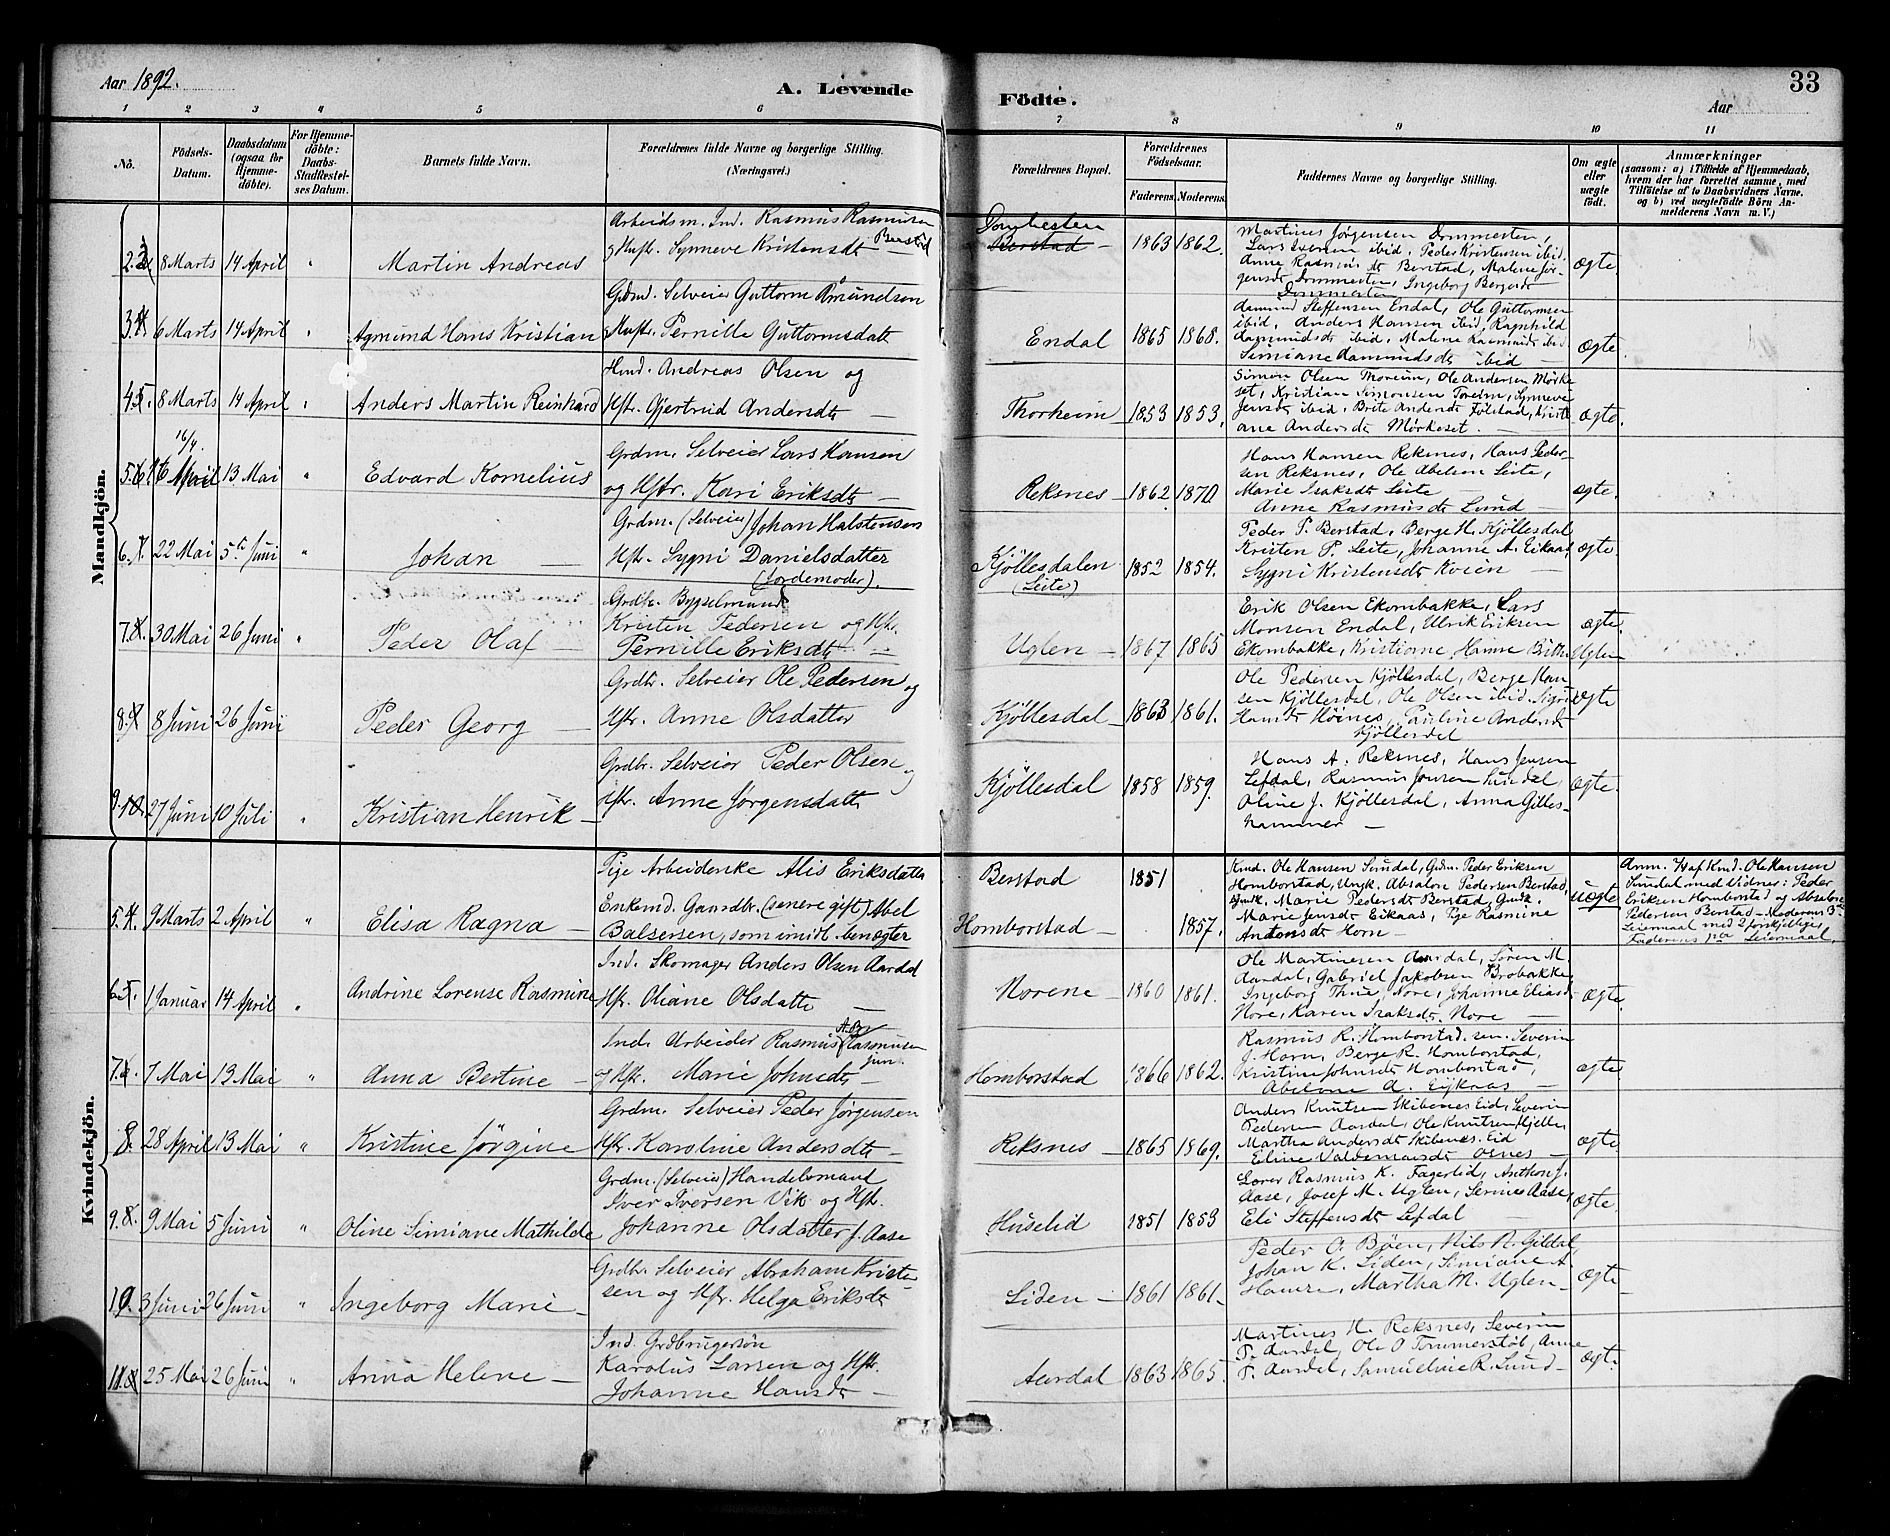 Aar 1892.
A. Levende
Födte.
Aar
33
1 2 3 4 5 6 7 8 9 10 11
No.
Födsels-
Datum.
Daabsdatum
(ogsaa for
Hjemme-
döbte).
For Hjemme-
döbte:
Daabs-
Stadfæstel-
ses Datum.
Barnets fulde Navn.
Forældrenes fulde Navne og borgerlige Stilling.
(Næringsvei.)
Forældrenes Bopæl.
Forældrenes
Födselsaar.
Faderens. Moderens.
Faddernes Navne og borgerlige Stilling.
Om ægte
eller
uægte
födt.
Anmærkninger
(saasom: a) i Tilfælde af Hjemmedaab,
hvem der har forrettet samme, med
Tilföielse af to Daabsvidners Navne.
og b) ved uægtefödte Börn An-
melderens Navn m. V.)
Mandkjön.
8 Marts 14 April " Martin Andreas
Arbeidsm. Ind. Rasmus Rasmusen
og Hustr. Synneve Kristensdt Berstad
Berstad 1863 1862.
Martines Jörgensen Dommesten,
Lars Iversen ibid, Peder Kristensen ibid.
Anne Rasmusdt Berstad, Malene Jör-
gensdt Dommesten, Ingeborg Bergersdt
Dommesten
ægte.
6 Marts 14 April " Agmund Hans Kristian
Grdm. Selveier Guttorm Amundsen
og Hustr. Pernille Guttormsdatt
Endal 1865 1868.
Aamund Steffensen Endal, Ole Guttormsen
ibid, Anders Hansen ibid, Ragnhild
Aamundsdt ibid, Malene Rasmusdt ibid
Simiane Aamundsdt ibid
ægte.
8 Marts 14 April " Anders Martin Reinhard
Hmd. Andreas Olsen og
Hstr. Gjertrud Andersdt
Thorheim 1853 1853.
Simon Olsen Thoreim, Ole Andersen Mörke-
set, Kristian Simonsen Toreim, Synneve
Jensdt ibid, Brite Andersdt Folstad, Kristi
ane Andersdt Mörkeset.
ægte.
16/4
April 13 Mai " Edvard Kornelius
Grdm. Selveier Lars Hansen
og Hstr. Kari Eriksdt
Reksnes 1862 1870
Hans Hansen Reksnes, Hans Peder-
sen Reksnes, Ole Abelsen Leite,
Marie Isaksdt Leite
Anne Rasmusdt Lund
ægte.
22 Mai 5te Juni " Johan
Grdm. (Selveier) Johan Halstensen
Hstr. Sygni Danielsdatter
(Jordemoder).
Kjöllesdalen
(Leite)
1852 1854.
Peder P. Berstad, Berge H. Kjöllesdal
Kristen P. Leite, Johanne A. Eikaas
Sygni Kristensdt Kvien
ægte.
30 Mai 26 Juni " Peder Olaf
Grdbr. Bygselmand
Kristen Pedersen og Hstr.
Pernille Eriksdt
Uglen 1867 1865
Erik Olsen Ekornbakke, Lars
Monsen Endal, Ulrik Eriksen
Ekornbakke, Kristiane
Uglen
ægte.
8 Juni 26 Juni Peder Georg
Grdbr. Selveier Ole Pedersen og
Hstr. Anne Olsdatter
Kjöllesdal 1863 1861.
Ole Pedersen Kjöllesdal, Berge Han
sen Kjöllesdal, Ole Olsen ibid. Sigrid
Hansdt Höines, Pauline Andersdt
Kjöllesdal
ægte
27 Juni 10 Juli " Kristian Henrik
Grdbr. Selveier Peder Olsen og
Hstr. Anne Jörgensdatt
Kjöllesdal 1858 1859.
Hans A. Reksnes, Hans Jensen
Lefdal, Rasmus Jonsen Lefdal,
Oline J. Kjöllesdal, Anna Gilles-
hammer
ægte.
Kvindekjön.
9 Marts 2 April " Elisa Ragna
Pige Arbeiderske Alis Eriksdatter
Enkemd. Gaardbr. (senere gift) Abel
Balsersen, som imidl. benægter
Berstad 1851
Homborstad 1857.
Kmd. Ole Hansen Sundal, Gdm. Peder Eriksen
Homborstad, Ungk. Absalon Pedersen Berstad,
Marie Pedersdt Berstad, Gmk.
Marie Jensdt Eikaas, Pige Rasmine
Antonsdt Horn
uægte
Anm. af Kmd. Ole Hansen
Sundal med Vidner: Peder
Eriksen Homborstad og Absalon
Pedersen Berstad. Moderens 3die
Leiermaal med 2 forskjellige.
Faderens 1ste Leiermaal.
1 Januar 14 April " Andrine Lorense Rasmine
Ind. Skomager Anders Olsen Aardal
Hstr. Oliane Olsdatte
Norene 1860 1861.
Ole Martinesen Aardal, Sören M.
Aardal, Gabriel Jakobsen Brobakke,
Ingeborg Thue, Nore, Johanne Eliasdt
Nore, Karen Isaksdt. Nore
ægte.
7 Mai 13 Mai " Anna Bertine
Ind. Arbeider Rasmus Rasmusen
jun.
og Hstr. Marie Johnsdt
Homborstad 1866 1862.
Rasmus R. Homborstad. sen. Severin
J. Horn, Berge R. Homborstad,
Kristine Johnsdt Homborstad,
Abelone A. Eikaas
ægte.
8. 28 April 13 Mai " Kristine Jörgine
Grdm. Selveier Peder Jörgensen
Hstr. Karoline Andersdt
Reksnes 1865 1869.
Anders Knutsen Skibenes Eid, Severin
Pedersen Aardal, Ole Knutsen Hjelle,
Martha Andersdt Skibenes. Eid
Eline Valdemarsdt Osnes
ægte.
9 Mai 5 Juni " Oline Simiane Mathilde
Grdm. (Selveier) Handelsmand
Iver Iversen Vik og Hstr.
Johanne Olsdatter f. Aase
Huselid 1851 1853
Lærer Rasmus K. Fagerlid, Anthon J.
Aase, Josef M. Uglen, Serine Aase,
Eli Steffensdt Lefdal
ægte.
3 Juni 26 Juni " Ingeborg Marie
Grdbr. Selveier Abraham Kriste
sen og Hstr. Helga Eriksdt
Liden 1861 1861.
Peder O. Böen, Nils R. Gildal,
Johan K. Liden, Simiane A
Hamre, Martha M. Uglen
ægte.
25 Mai 26 Juni " Anna Helene
Ind. Grdbrugersön
Karolus Larsen og Hstr.
Johanne Hansdt
Aardal 1863 1865.
Martines H. Reksnes, Severin
P. Aardal, Ole O Tommerstöl, Anne
P. Aardal, Samueline R. Lund
ægte.